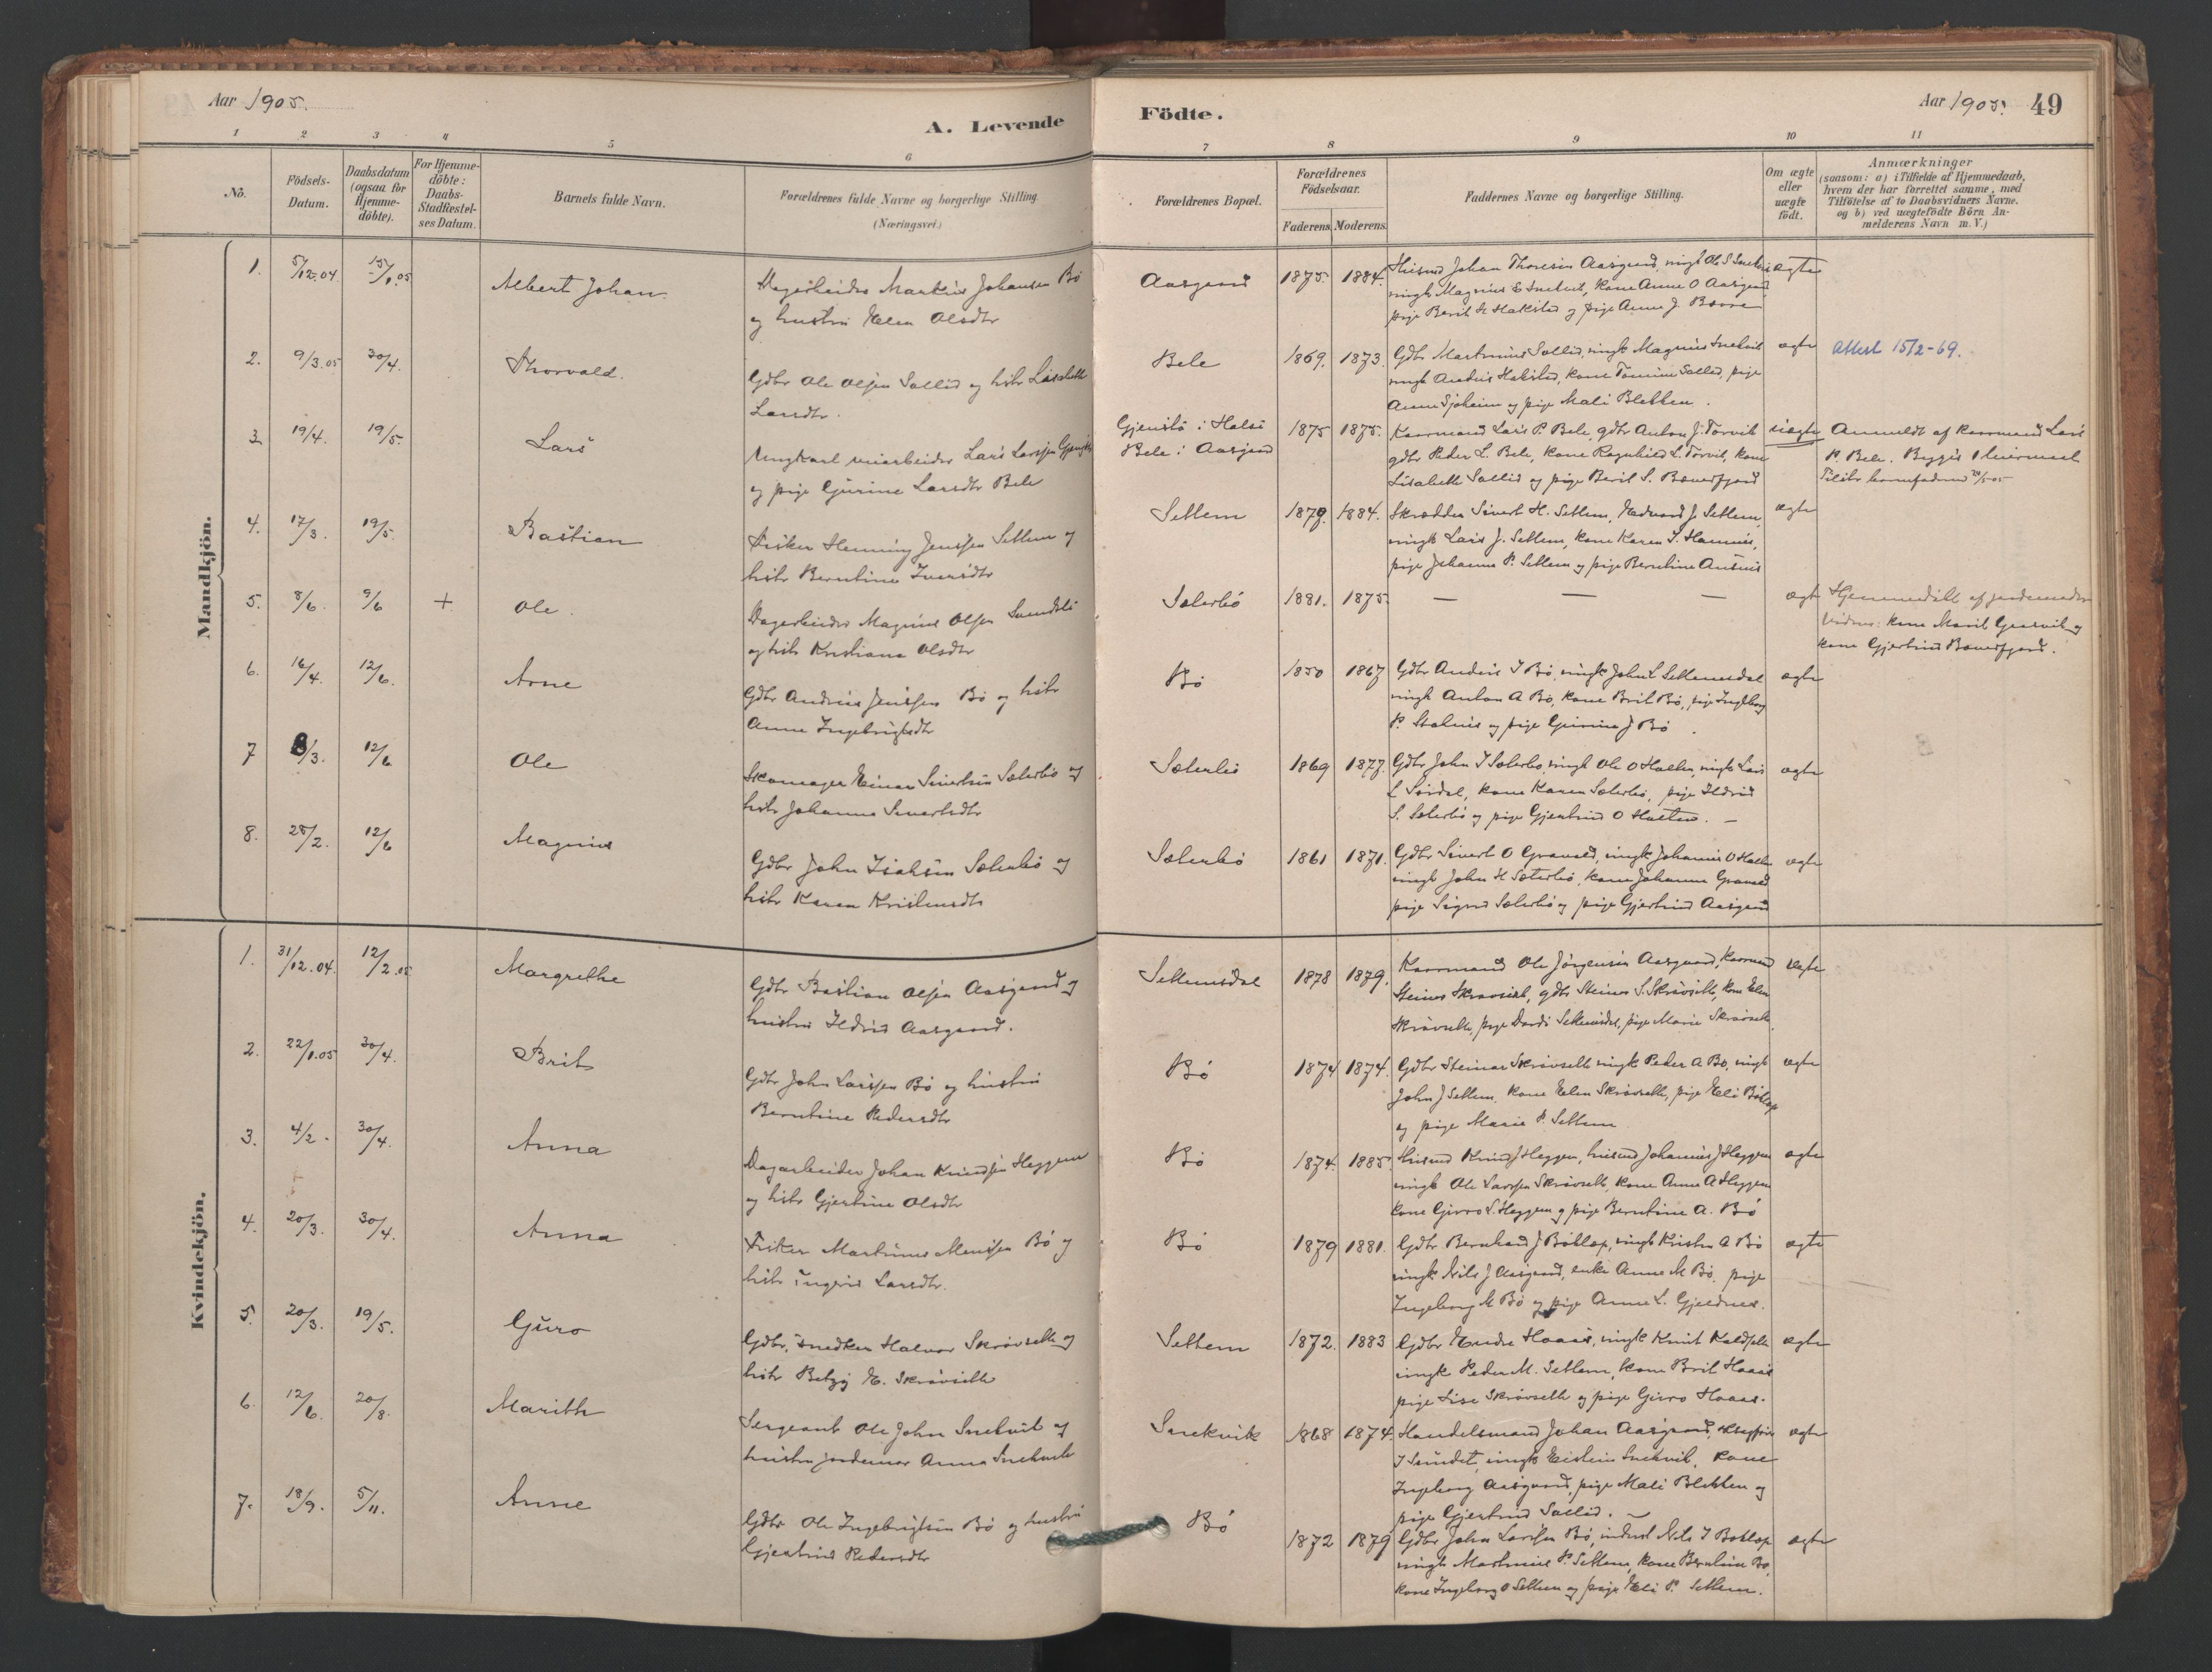 Aar 1905.
A. Levende Födte.
Aar 1905. 49
1 2 3 4 5 6 7 8 9 10 11
No.
Födsels-Datum.
Daabsdatum (ogsaa for Hjemme-döbte).
For Hjemme-döbte: Daabs-Stadfæstel-ses Datum.
Barnets fulde Navn.
Forældrenes fulde Navne og borgerlige Stilling (Næringsvei.)
Forældrenes Bopæl.
Forældrenes Födselsaar.
Faderens Moderens
Faddernes Navne og borgerlige Stilling.
Om ægte eller uægte födt.
Anmærkninger
(saasom: a) i Tilfælde af Hjemmedaab,
hvem der har forrettet samme, med
Tilföielse af to Daabsvidners Navne.
og b) ved uægtefödte Börn An-
melderens Navn m. V.)
Mandkjön.
1. 5/12-04 15/1.05 Albert Johan.
Johansen Bö
og hustru Elen Olsdtr
Aasgaard 1875. 1884.
Husmd Johan Thoresen Aasgaard, ungk Ole S Snekvik
ungk Magnus E Snekvik, kone Anne O Aasgaard,
pige Berit H Hakstad og pige Anne J. Bævre
ægte
2. 9/3.05 30/4. Thorvald.
Gdbr Ole Olsen Sollid og hstr Lisabeth
Larsdtr.
Bele 1869. 1873.
Gdbr Martinus Sollid, ungk Magnus Snekvik
ungk Anders Hakstad, kone Sollid, pige
Anne Sjøheim og pige Mali Blekken.
ægte
Attest 15/2-69.
3. 19/4. 19/5. Lars
Ungkarl veiarbeider Lars Larssen
og pige Gjurine Larsdtr Bele
i Halsö
Bele i Aasgaard
1875 1875.
Kaarmand Lars P. Bele, gdbr Anton J. Torvik
gdbr Peder L. Bele, kone Ragnhild L. Torvik, kone
Lisabeth Sollid og pige Berit S. Bæverfjord
uægte
Anmeldt af kaarmand Lars
P. Bele.
4. 17/3. 19/5. Bastian
Fisker Henning Jenssen Settem og
hstr Berntine Iversdtr
Settem 1879. 1884.
Skrædder Sivert H. Settem, Edvard J. Settem,
ungk Lars J. Settem, kone Karen S. Hamnes,
pige Johanna P. Settem og pige Berntine
ægte
5. 8/6. 9/6 + Ole.
Dagarbeider Magnus Olsen
og hstr Kristiane Olsdtr
Sæterbö 1881. 1875.
— — —
ægte
Hjemmedöbt af jordemoder
Vidner: kone Marit og
kone Gjertrud Bæverfjord.
6. 16/4. 12/6. Arne
Gdbr Andreas Jenssen Bö og hstr
Anne Ingebrigtsdtr
Bö 1850 1867
Gdbr Anders I Bö, ungk John L Settemsdal
ungk Anton A Bö, kone Brit Bö, pige Ingeborg
P. Stolsnes og pige Gurine J Bö.
ægte
7 8/3. 12/6 Ole
Skomager Einar Sivertsen Sæterbö og
hstr Johanna Sivertsdtr
Sæterbö 1869 1877.
Gdbr John I Sæterbö, ungk Ole O Halten, ungk Lars
L Surdal, kone Karen Sæterbö, pige Ildrid
S. Sæterbö og pige Gjertrud O Halten. —
ægte
8. 28/2. 12/6 Magnus
Gdbr John Isaksen Sæterbö og
hstr Karen Kristensdtr
Sæterbö 1861 1871.
Gdbr Sivert O Granset, ungk Johannes O Halten
ungk John H Sæterbö, kone Johanna Granset
pige Sigrid Sæterbö og pige Gjertrud Aasgaard
ægte
Kvindekjön.
1. 31/12.04. 12/2.05 Margrethe
Gdbr Bastian Olsen Aasgaard og
hustru Ildrid Aasgaard.
Settemsdal 1878 1879.
Kaarmand Ole Jörgensen Aasgaard, kaarmand
Steinar Skrövseth, gdbr Steinar S. Skrövseth, kone Elen
Skrövseth, pige Dordi Settemsdal, pige Marie Skrövseth.
ægte
2. 22/1.05 30/4. Brit
Gdbr John Larssen Bö og hustru
Berntine Pedersdtr
Bö 1874 1874.
Gdbr Steinar Skrövseth ungk Peder A Bö, ungk
John J Settem, kone Elen Skrövseth, pige Eli Böklep
og pige Marie P. Settem
ægte
3. 4/2. 30/4. Anna
Dagarbeider Johan Knudsen Heggem
og hstr Gjertine Olsdtr
Bö 1874. 1885.
Husmd Knud J Heggem, husmd Johannes J Heggem
ungk Ole Larssen Skrövseth, kone Anne A Heggem
kone Guro S. Heggem og pige Berntine A. Bö
ægte
4. 20/3. 30/4. Anna
Fisker Martinus Monssen Bö og
hstr Ingrid Larsdtr.
Bö 1879 1881.
Gdbr Bernhard J Böklep, ungk Kristen A Bö
ungk Nils J Aasgaard, enke Anne M Bö, pige
Ingeborg M Bö og pige Anne L. Gjeldnes.
ægte
5. 20/3. 19/5. Guro
Gdbr, snedker Halvor Skrövseth og
hstr Betzy E. Skrövseth
Settem 1872. 1883
Gdbr Endre Haaas, ungk Knut
ungk Peder M. Settem, kone Brit Haaas
pige Lise Skrövseth og pige Guro Haaas.
ægte
6. 12/6. 20/8. Marith
Sergeant Ole John Snekvik og
hustru jordemor Anna Snekvik
Snekvik 1868 1874.
Handelsmand Johan Aasgaard,
I Sundet, ungk Eistein Snekvik, kone
Ingeborg Aasgaard, pige Mali Blekken og
pige Gjertrud Sollid. —
ægte
7. 18/9. 5/11. Anne
Gdbr Ole Ingebrigtsen Bö og hustru
Gjertrud Pedersdtr
Bö 1872 1879
Gdbr John Larssen Bö, Nils I Böklep
ungk Martinus P. Settem, kone Berntine Bö,
kone Ingeborg O Settem og pige Eli P. Settem.
ægte